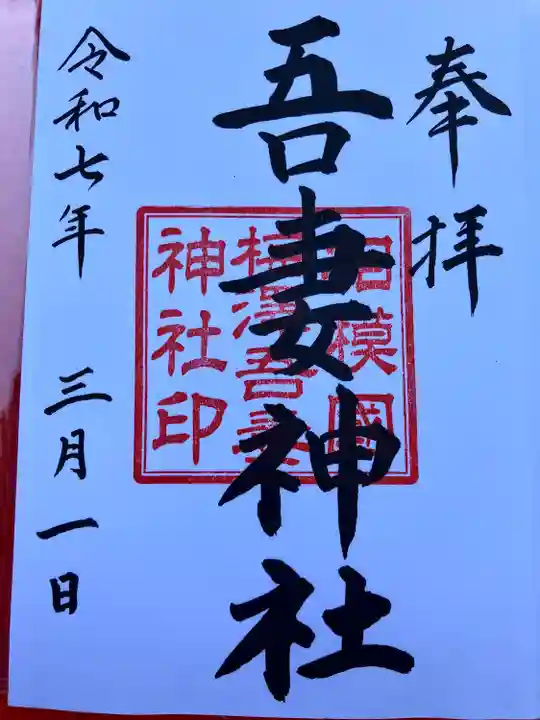 奉拝
吾妻神社
相模國
梅澤吾妻
神社印
令和七年 三月一日